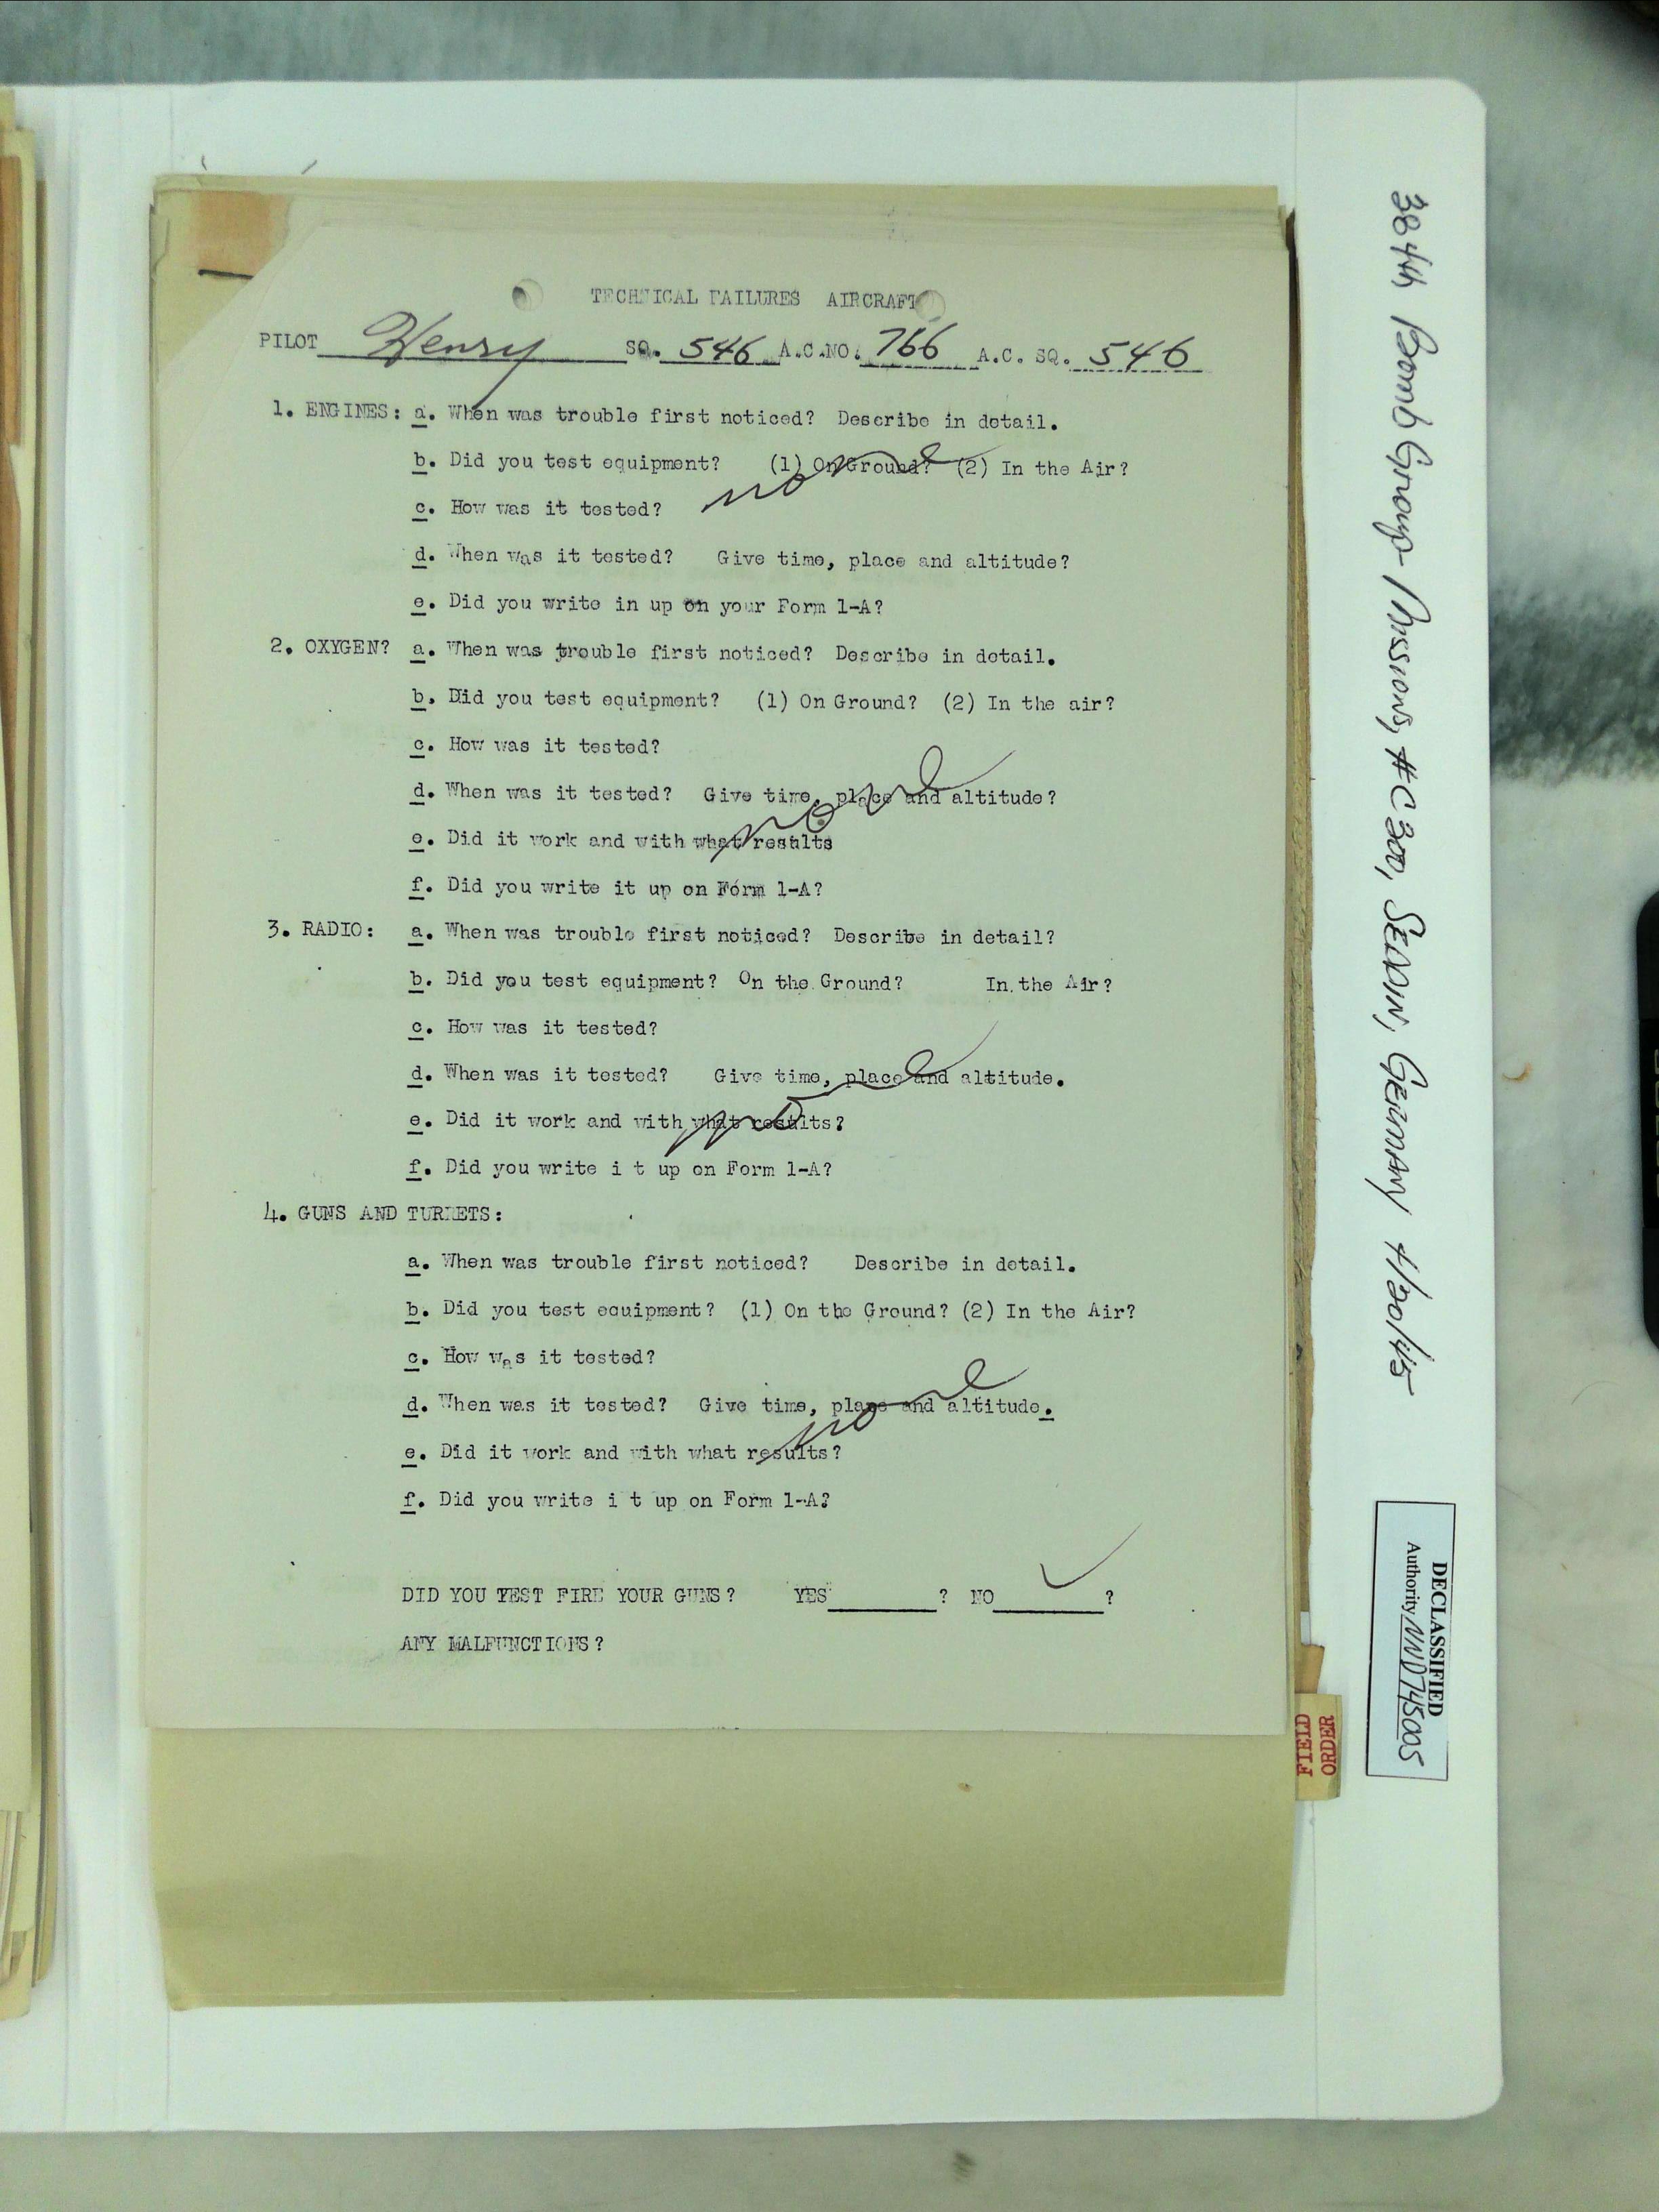 TECHNICAL FAILURES AIRCRAFT
PILOT Henry SQ. 546 A.C.NO. 766 A.C. SQ. 546
1. ENGINES: a. When was trouble first noticed? Describe in detail.
b. Did you test equipment? (1) On Ground? (2) In the Air?
none
c. How was it tested?
d. When was it tested? Give time, place and altitude?
e. Did you write in up on your Form 1-A?
2. OXYGEN? a. When was trouble first noticed? Describe in detail.
b. Did you test equipment? (1) On Ground? (2) In the air?
c. How was it tested?
d. When was it tested? Give time, place and altitude?
none
e. Did it work and with what results
f. Did you write it up on Form 1-A?
3. RADIO: a. When was trouble first noticed? Describe in detail?
b. Did you test equipment? On the Ground? In the Air?
c. How was it tested?
d. When was it tested? Give time, place and altitude.
none
e. Did it work and with what results?
f. Did you write i t up on Form 1-A?
4. GUNS AND TURRETS:
a. When was trouble first noticed? Describe in detail.
b. Did you test equipment? (1) On the Ground? (2) In the Air?
c. How was it tested?
d. When was it tested? Give time, place and altitude.
none
e. Did it work and with what results?
f. Did you write i t up on Form 1-A?
DID YOU TEST FIRE YOUR GUNS? YES ? NO ✓ ?
ANY MALFUNCTIONS?
384th Bomb Group - Missions, #C300, , Germany 4/20/45
DECLASSIFIED
Authority NND745005
FIELD
ORDER